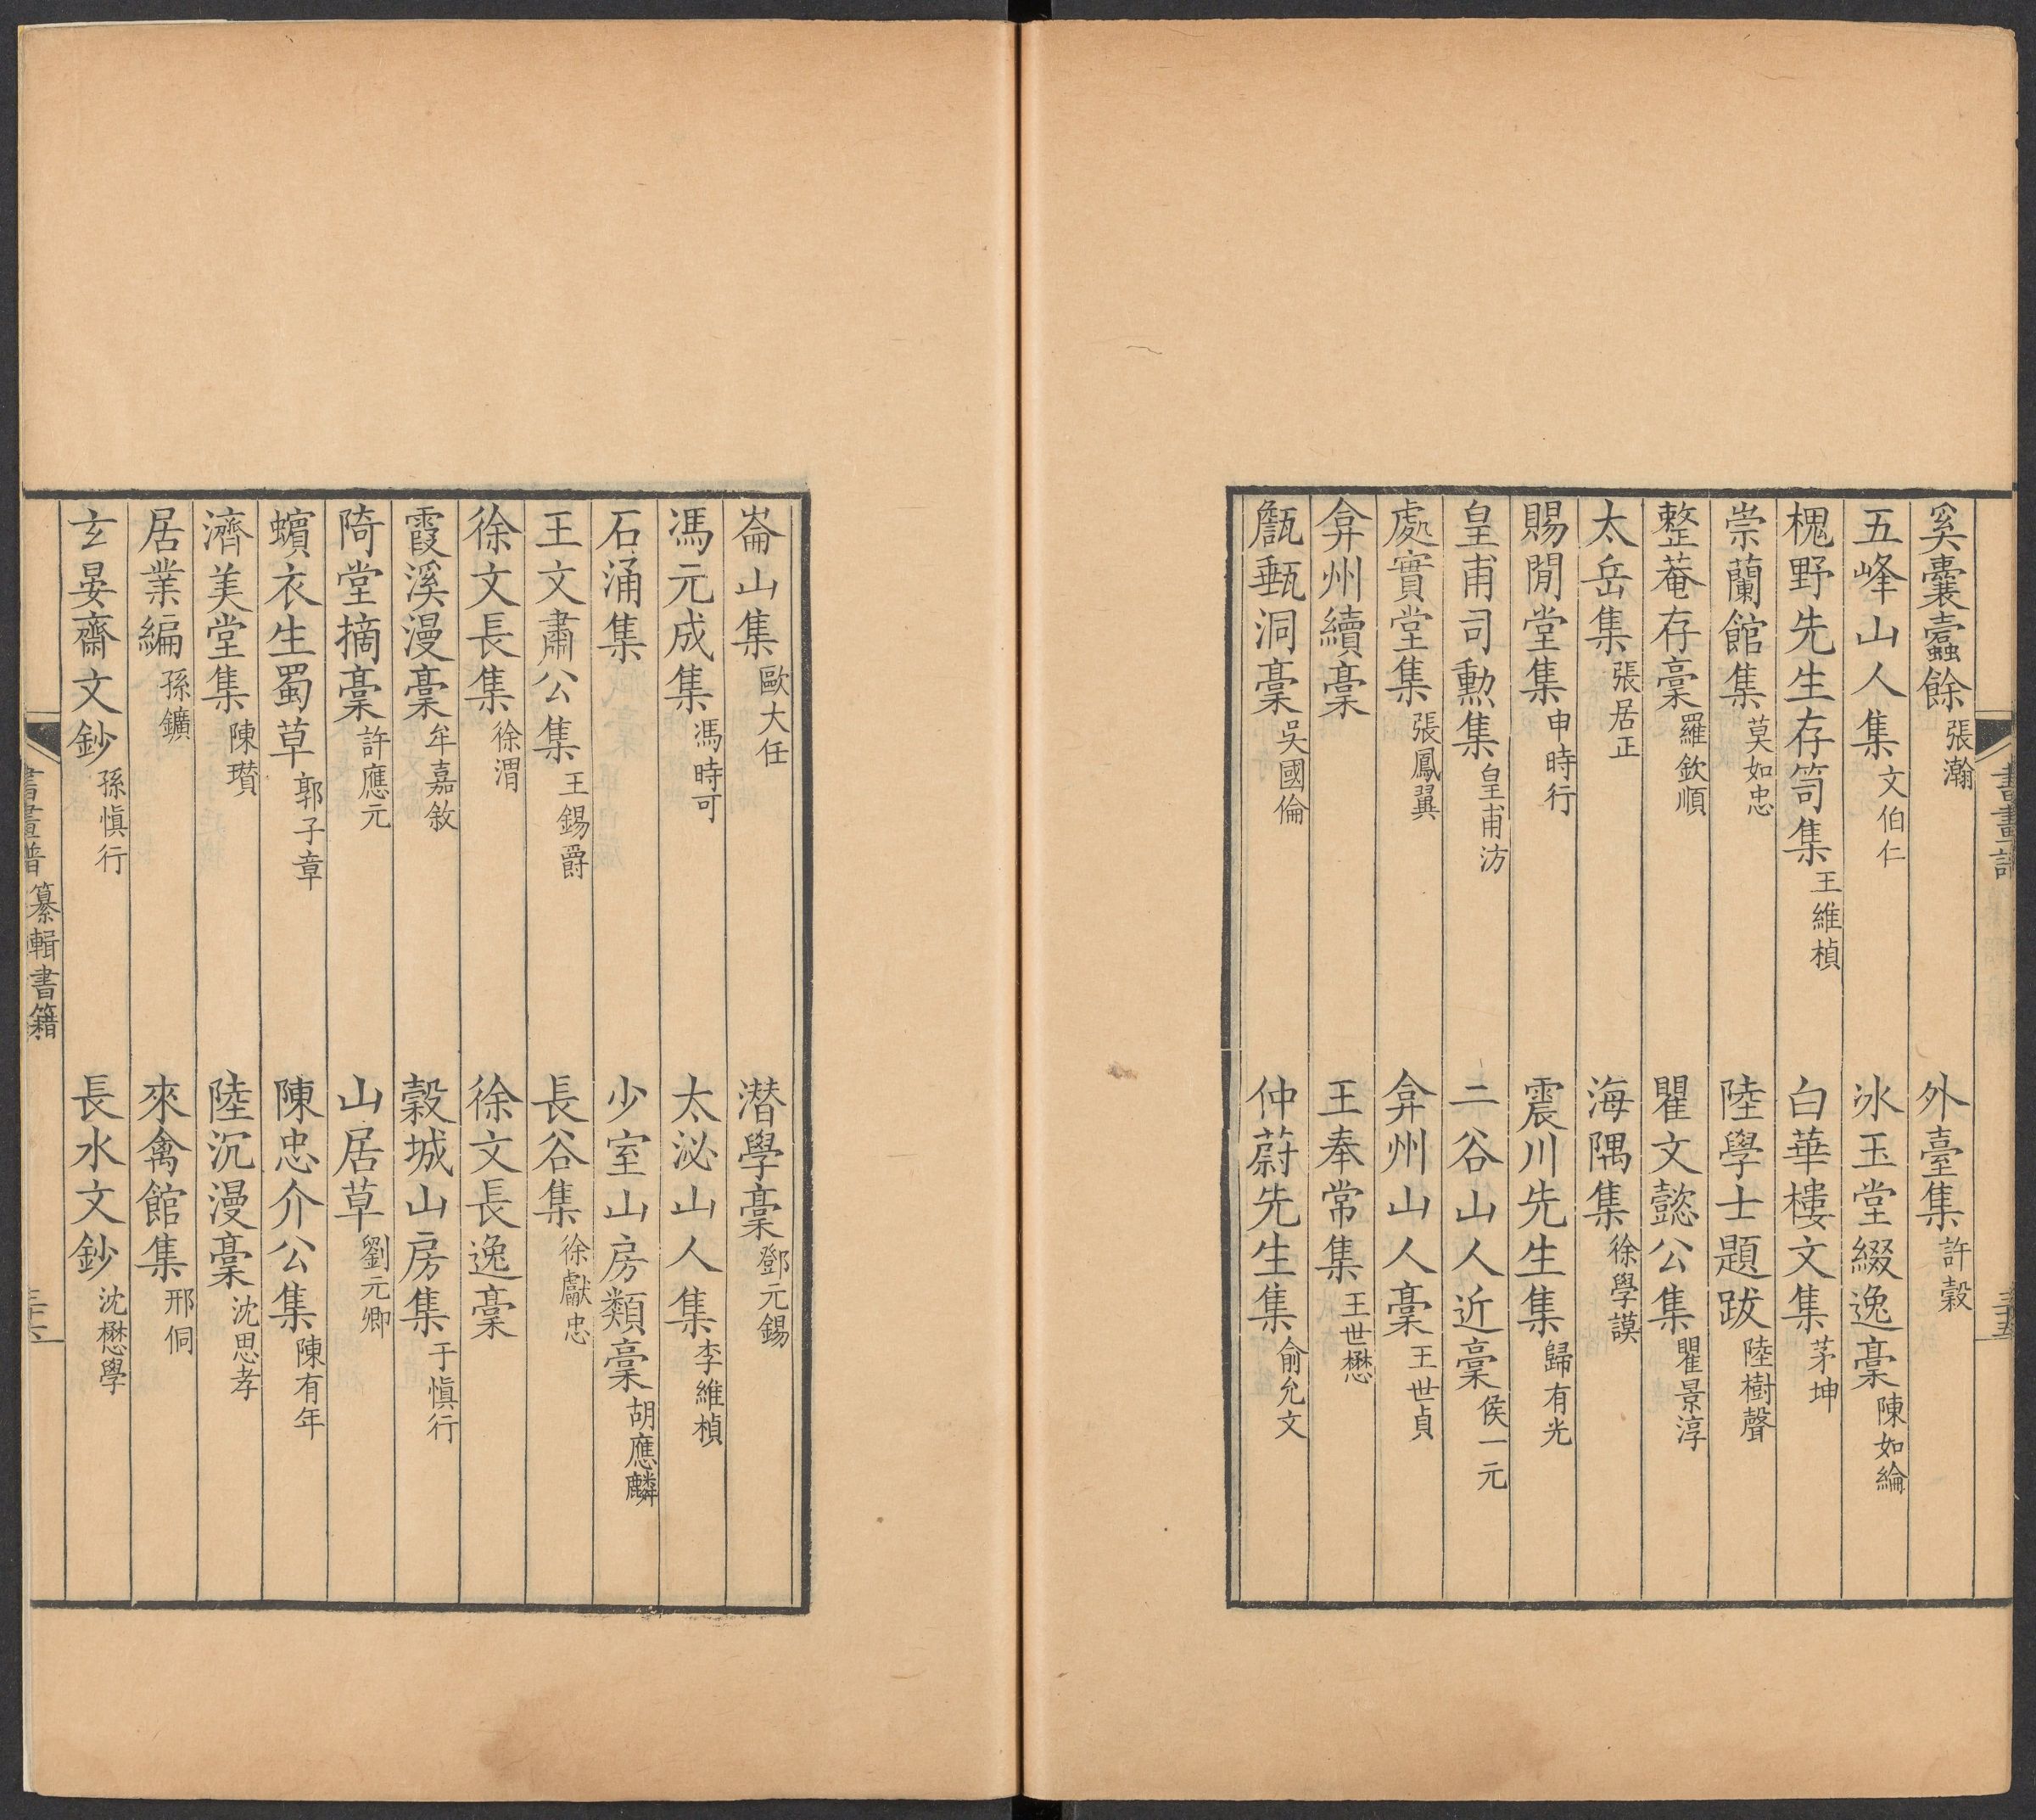 奚囊蠹餘 張瀚 外臺集 許穀
五峰山人集 文伯仁 冰玉堂綴逸稾 陳如綸
槐野先生存笥集 王維楨 白華樓文集 茅坤
崇蘭館集 莫如忠 陸學士題跋 陸樹聲
整菴存稾 羅欽順 瞿文懿公集 瞿景淳
太岳集 張居正 海隅集 徐學謨
賜閒堂集 申時行 震川先生集 歸有光
皇甫司勲集 皇甫汸 二谷山人近稾 侯一元
處實堂集 張鳳翼 弇州山人稾 王世貞
弇州續稾 王奉常集 王世懋
甔甀洞稾 吳國倫 仲蔚先生集 俞允文
崙山集 歐大任 潜學稾 鄧元錫
馮元成集 馮時可 太泌山人集 李維楨
石涌集 少室山房類稾 胡應麟
王文肅公集 王錫爵 長谷集 徐獻忠
徐文長集 徐渭 徐文長逸稾
霞溪漫稾 牟嘉敘 穀城山房集 于慎行
陭堂摘稾 許應元 山居草 劉元卿
蠙衣生蜀草 郭子章 陳忠介公集 陳有年
濟美堂集 陳瓚 陸沉漫稾 沈思孝
居業編 孫鑛 來禽館集 邢侗
玄晏齋文鈔 孫愼行 長水文鈔 沈懋學
書畫譜 纂輯書籍